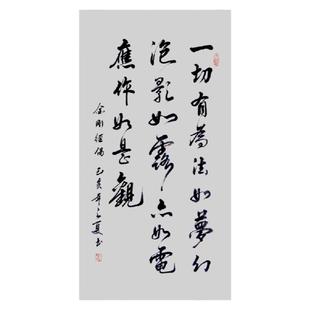 一切有為法如夢幻
泡影如露亦如電
應作如是觀
金剛經偈 己亥年之夏书